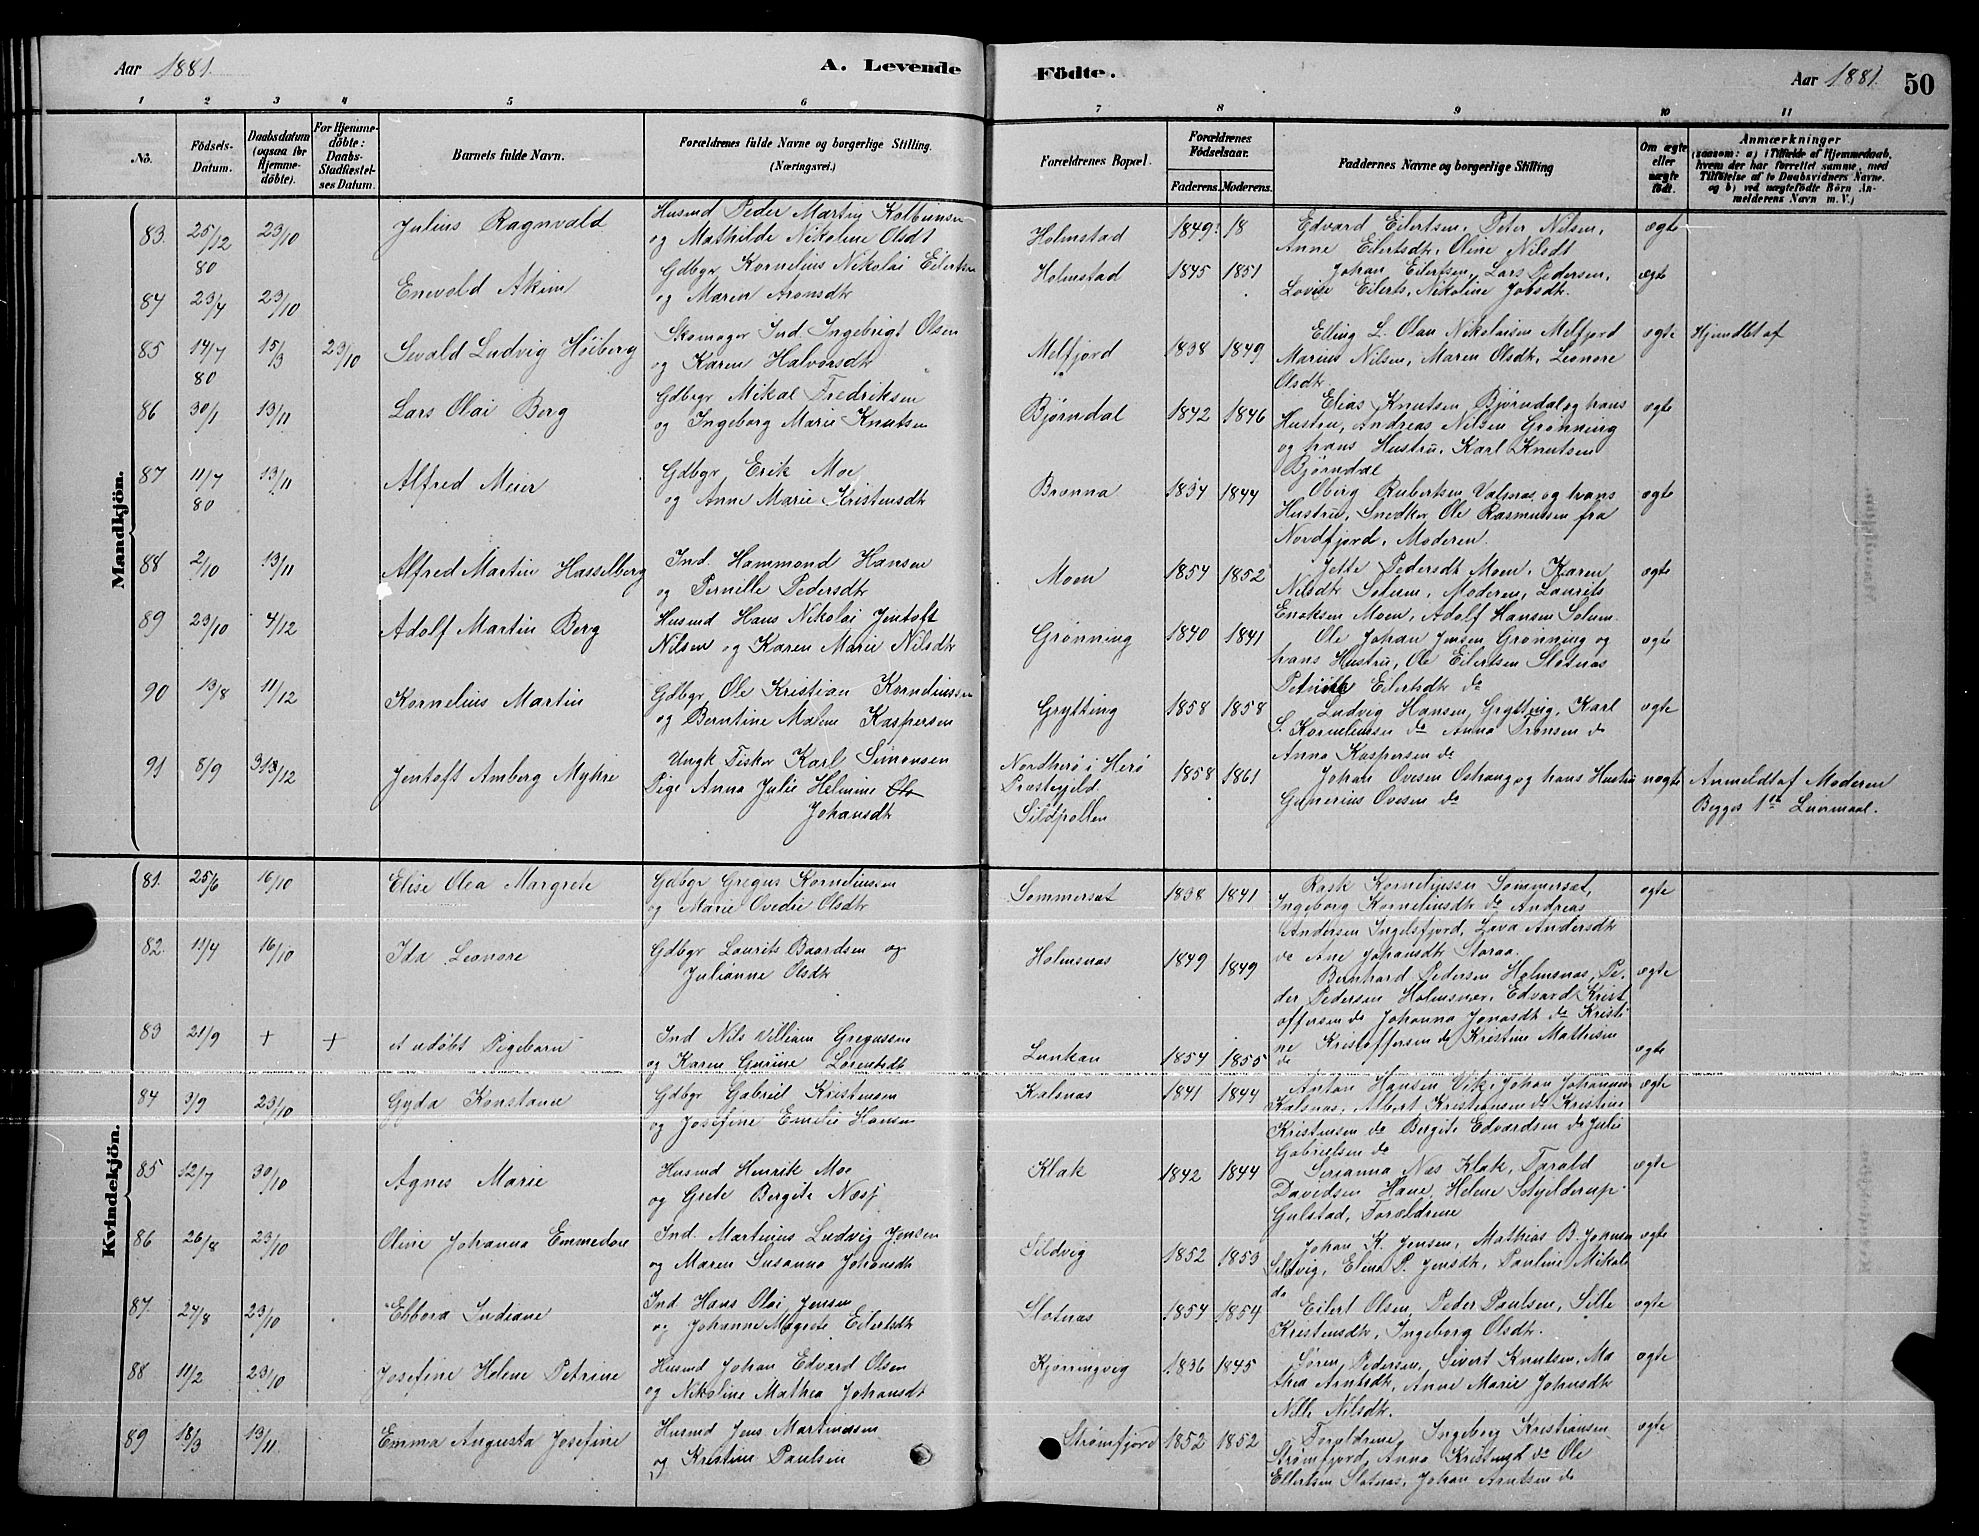 Aar 1881.
A. Levende
Födte.
Aar 1881.
50
1 2 3 4 5 6 7 8 9 10 11
No.
Födsels-Datum.
Daabsdatum (ogsaa for Hjemme-döbte).
For Hjemme-döbte: Daabs-Stadfæstel-ses Datum.
Barnets fulde Navn.
Forældrenes fulde Navne og borgerlige Stilling.
(Næringsvei.)
Forældrenes Bopæl.
Forældrenes Födselsaar.
Faderens. Moderens.
Faddernes Navne og borgerlige Stilling
Om ægte eller uægte födt.
Anmærkninger
(saasom: a) i Tilfælde af Hjemmedaab, hvem der har forrettet samme, med Tilföielse af to Daabsvidners Navne. og b) ved uægtefödte Börn An-melderens Navn m. V.)
Mandkjön.
83. 25/12 80 23/10 Julius Ragnvald
Husmd Peder Martin Kolbeinsen
og Mathilde Nikoline Olsdt
Holmstad 1849 18
Edvard Eilertsen, Peter Nilsen,
Anne Eilertsdtr, Oline Nilsdt
ægte
84 23/4 23/10 Enevold Akim
Gdbgr Kornelius Nikolai Eilertsen
og Maren Aronsdtr
Holmstad 1845 1851
Johan Eilertsen, Lars Pedersen,
Lovise Eilerts, Nikoline Jobsdtr.
ægte
85 14/7 80 15/3 23/10 Sevald Ludvig Höiberg
Skomager Ind Ingebrigt Olsen
og Karen Halvorsdtr
Melfjord 1838 1849
Elling L. Olau Nikolaisen Melfjord
Marius Nilsen, Maren Olsdtr, Leonore
Olsdtr
ægte Hjemdbt af
86 30/1 13/11 Lars Olai Berg
Gdbrgr Mikal Fredriksen
og Ingeborg Marie Knutsen
Bjørndal 1842 1846
Elias Knutsen, Bjørndal og hans
Hustru, Andreas Nilsen Grønning
og hans Hustru, Karl Knutsen
Bjørndal
ægte
87 11/7 80 13/11 Alfred Meier
Gdbgr Erik Moe
og Anne Marie Kristensdtr
Brønna 1834 1844
Oberg Rubertsen, Valnes og hans
Hustru, Snedker Ole Rasmussen fra
Nordfjord, Moderen.
ægte
88 2/10 13/11 Alfred Martin Hasselberg
Ind Hammond Hansen
og Pernille Pedersdtr
Moen 1854 1852
Jette Pedersdt Moen, Karen
Nilsdtr Solum, Moderen, Laurits
Enoksen Moen, Adolf Hansen Solum
ægte
89 23/10 4/12 Adolf Martin Berg
Husmd Hans Nikolai Jentoft
Nilsen og Karen Marie Nilsdtr
Grønning 1840 1841
Ole Johan Jensen Grønning og
hans Hustru, Ole Eilertsen Slotnæs
Petrine Eilertsdtr do
ægte
90 13/8 11/12 Kornelius Martin
Gdbgr Ole Kristian Korneliussen
og Berntine Malene Kaspersen
Grytting 1858 1858
Ludvig Hansen, Grytting, Karl
S. Korneliussen do Anna Fransen do
Anna Kaspersen do
ægte
91 8/9 313/12 Jentoft Amberg Myhre
Ungk Fisker Karl Simonsen
Pige Anna Julie Helmine
Johansdtr
Nordherö i Herö
Præstegjeld
Sildpollen
1858 1861
Johan Ovesen Ostrang og hans Hustru
Gunerius Ovesen do
uægte
Anmeldt af Moderen
Begges 1ste Leiermaal.
Kvindekjön.
81. 25/6 16/10 Elise Olea Margrete
Gdbgr Gregus Korneliussen
og Marie Ovedie Olsdtr
Sommerset 1838 1841
Rask Korneliussen Sommerset,
Ingeborg Korneliusdtr do Andreas
Andersen Ingelsfjord, Lava Andersdtr
do Ane Johansdtr Storaa.
ægte
82. 11/4 16/10 Ida Leonore
Gdbgr Laurits Baardsen og
Julianne Olsdtr
Holmsnæs 1849 1849
Bernhard Pedersen Holmsnæs, Pe-
der Pedersen Holmsnæs, Edvard Krist
offersen do Johanna Jonasdtr do Kristi-
ne Kristoffersen do Kristine Mathisen
do
ægte
83 21/9 + + et udøbt Pigebarn
Ind Nils Villiam Gregussen
og Karen Gurine Lorentsdt
Lunkan 1854 1855
ægte
84 3/9 23/10 Gyda Konstane
Gdbgr Gabriel Kristensen
og Josefine Emilie Hansen
Kalsnæs 1841 1844
Anton Hansen Vik, Johan Johannesen
Kalsnæs, Albert Kristensen do Kristine
Kristensen do Bergite Edvardsen do Julie
Gabrielsen do
ægte
85 12/7 30/10 Agnes Marie
Husmd Henrik Moe
og Grete Bergite Næss
Klak 1842 1844
Serianna Næs Klak, Torald
Davidsen Hane, Helene Schjelderup
Gulstad, Forældrene
ægte
86 26/8 23/10 Oline Johanna Emmedore
Ind. Martinus Ludvig Jensen
og Maren Susanna Johansdtr
Sildvig 1852 1853
Johan K. Jensen, Mathias B. Johnsen
Sildvig, Elina P. Jensdtr, Pauline Mikals
do
ægte
87 27/8 23/10 Ebbora Indiane
Ind Hans Olai Jensen
og Johanne Magrete Eilertsdtr
Slotnæs 1854 1854
Eilert Olsen, Peder Paulsen, Sille
Kristensdtr, Ingeborg Olsdtr.
ægte
88 11/2 23/10 Josefine Helene Petrine
Husmd Johan Edvard Olsen
og Nikoline Mathea Johansdt
Kjørringvig 1836 1845
Søren Pedersen, Sivert Knutsen, Ma
thea Arntsdtr, Anne Marie Johnsdtr
Nille Nilsdtr.
ægte
89 18/3 13/11 Emma Augusta Josefine
Husmd Jens Martinussen
og Kristine Paulsen
Strømfjord 1852 1852
Forældrene, Ingeborg Kristiansen
Strømfjord, Anna Kristensd do Ole
Eilertsen Slotnæs, Johan Arntsen do
ægte